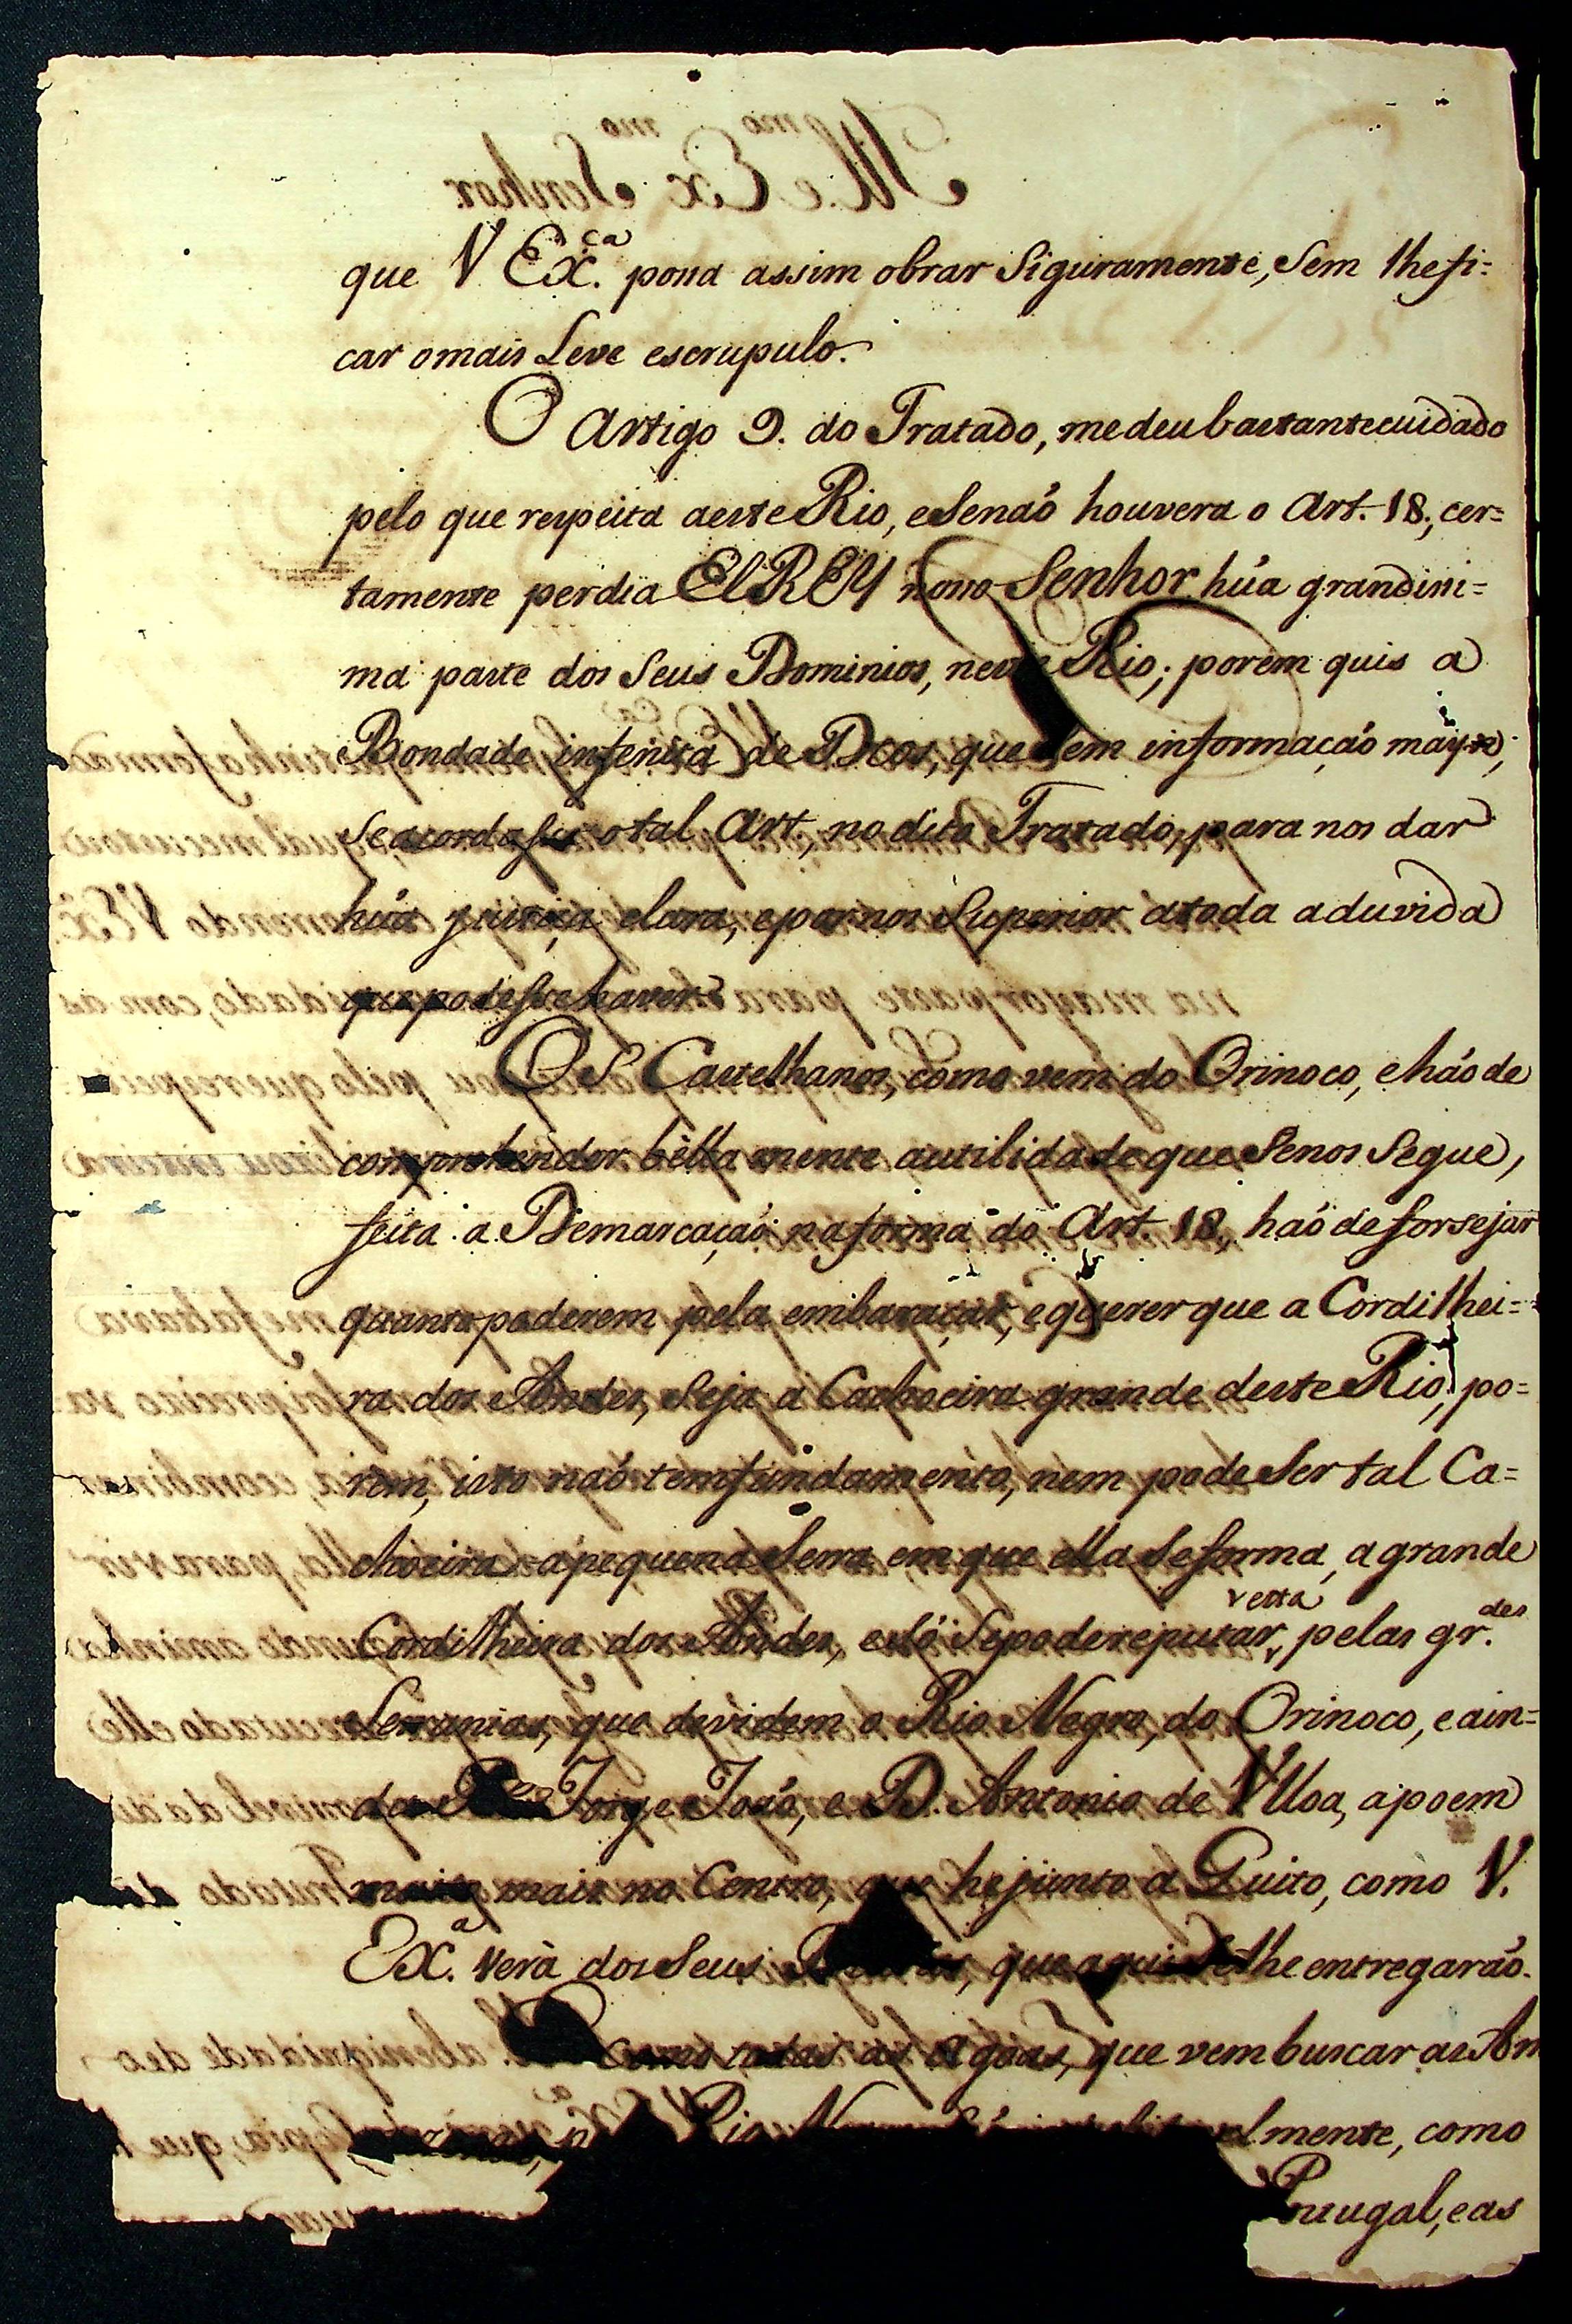 que V Ex.ca possa assim obrar Siguramente, Sem lhe fi=
car o mais Leve escrupulo.
O Artigo 9. do Tratado, me deu bastante cuidado
pelo que respeita a este Rio, e Se naõ houvera o Art. 18., cer=
tamente perdia El REY nosso Senhor hũa grandissi=
ma parte dos Seus Dominios, neste Rio; porem quis a
Bondade infenita de Deos, que Sem informaçaõ mayor,
Se acordasse o tal Art., no dito Tratado, para nos dar
hũa justiça clara, e por nos Superior a toda a duvida
que podesse haver.
OS Castelhanos, como vem do Orinoco, e haõ de
comprehender bellamente a utilidade que Se nos Segue,
feita a Demarcaçaõ na forma do Art. 18., haõ de forsejar
quanto poderem pela embaraçar, e querer que a Cordilhei=
ra dos Andes, Seja a Cachoeira grande deste Rio, po=
rem, isto naõ tem fundamento, nem pode Ser tal Ca=
choeira a pequena Serra em que ella Se forma, a grande
Cordilheira dos Andes, e Só Se pode reputar, pelas gr.des
vesta
Serranias, que devidem o Rio Negro, do Orinoco, e ain=
da Jorge Joaõ, e D. Antonio de Ulloa, a poem
mais no Centro, que he junto a Quito, como V.
Ex.a verà dos Seus que aqui Se lhe entregaráõ.
Como todas as agoas, que vem buscar as Am
Rio lmente, como
Portugal, e as